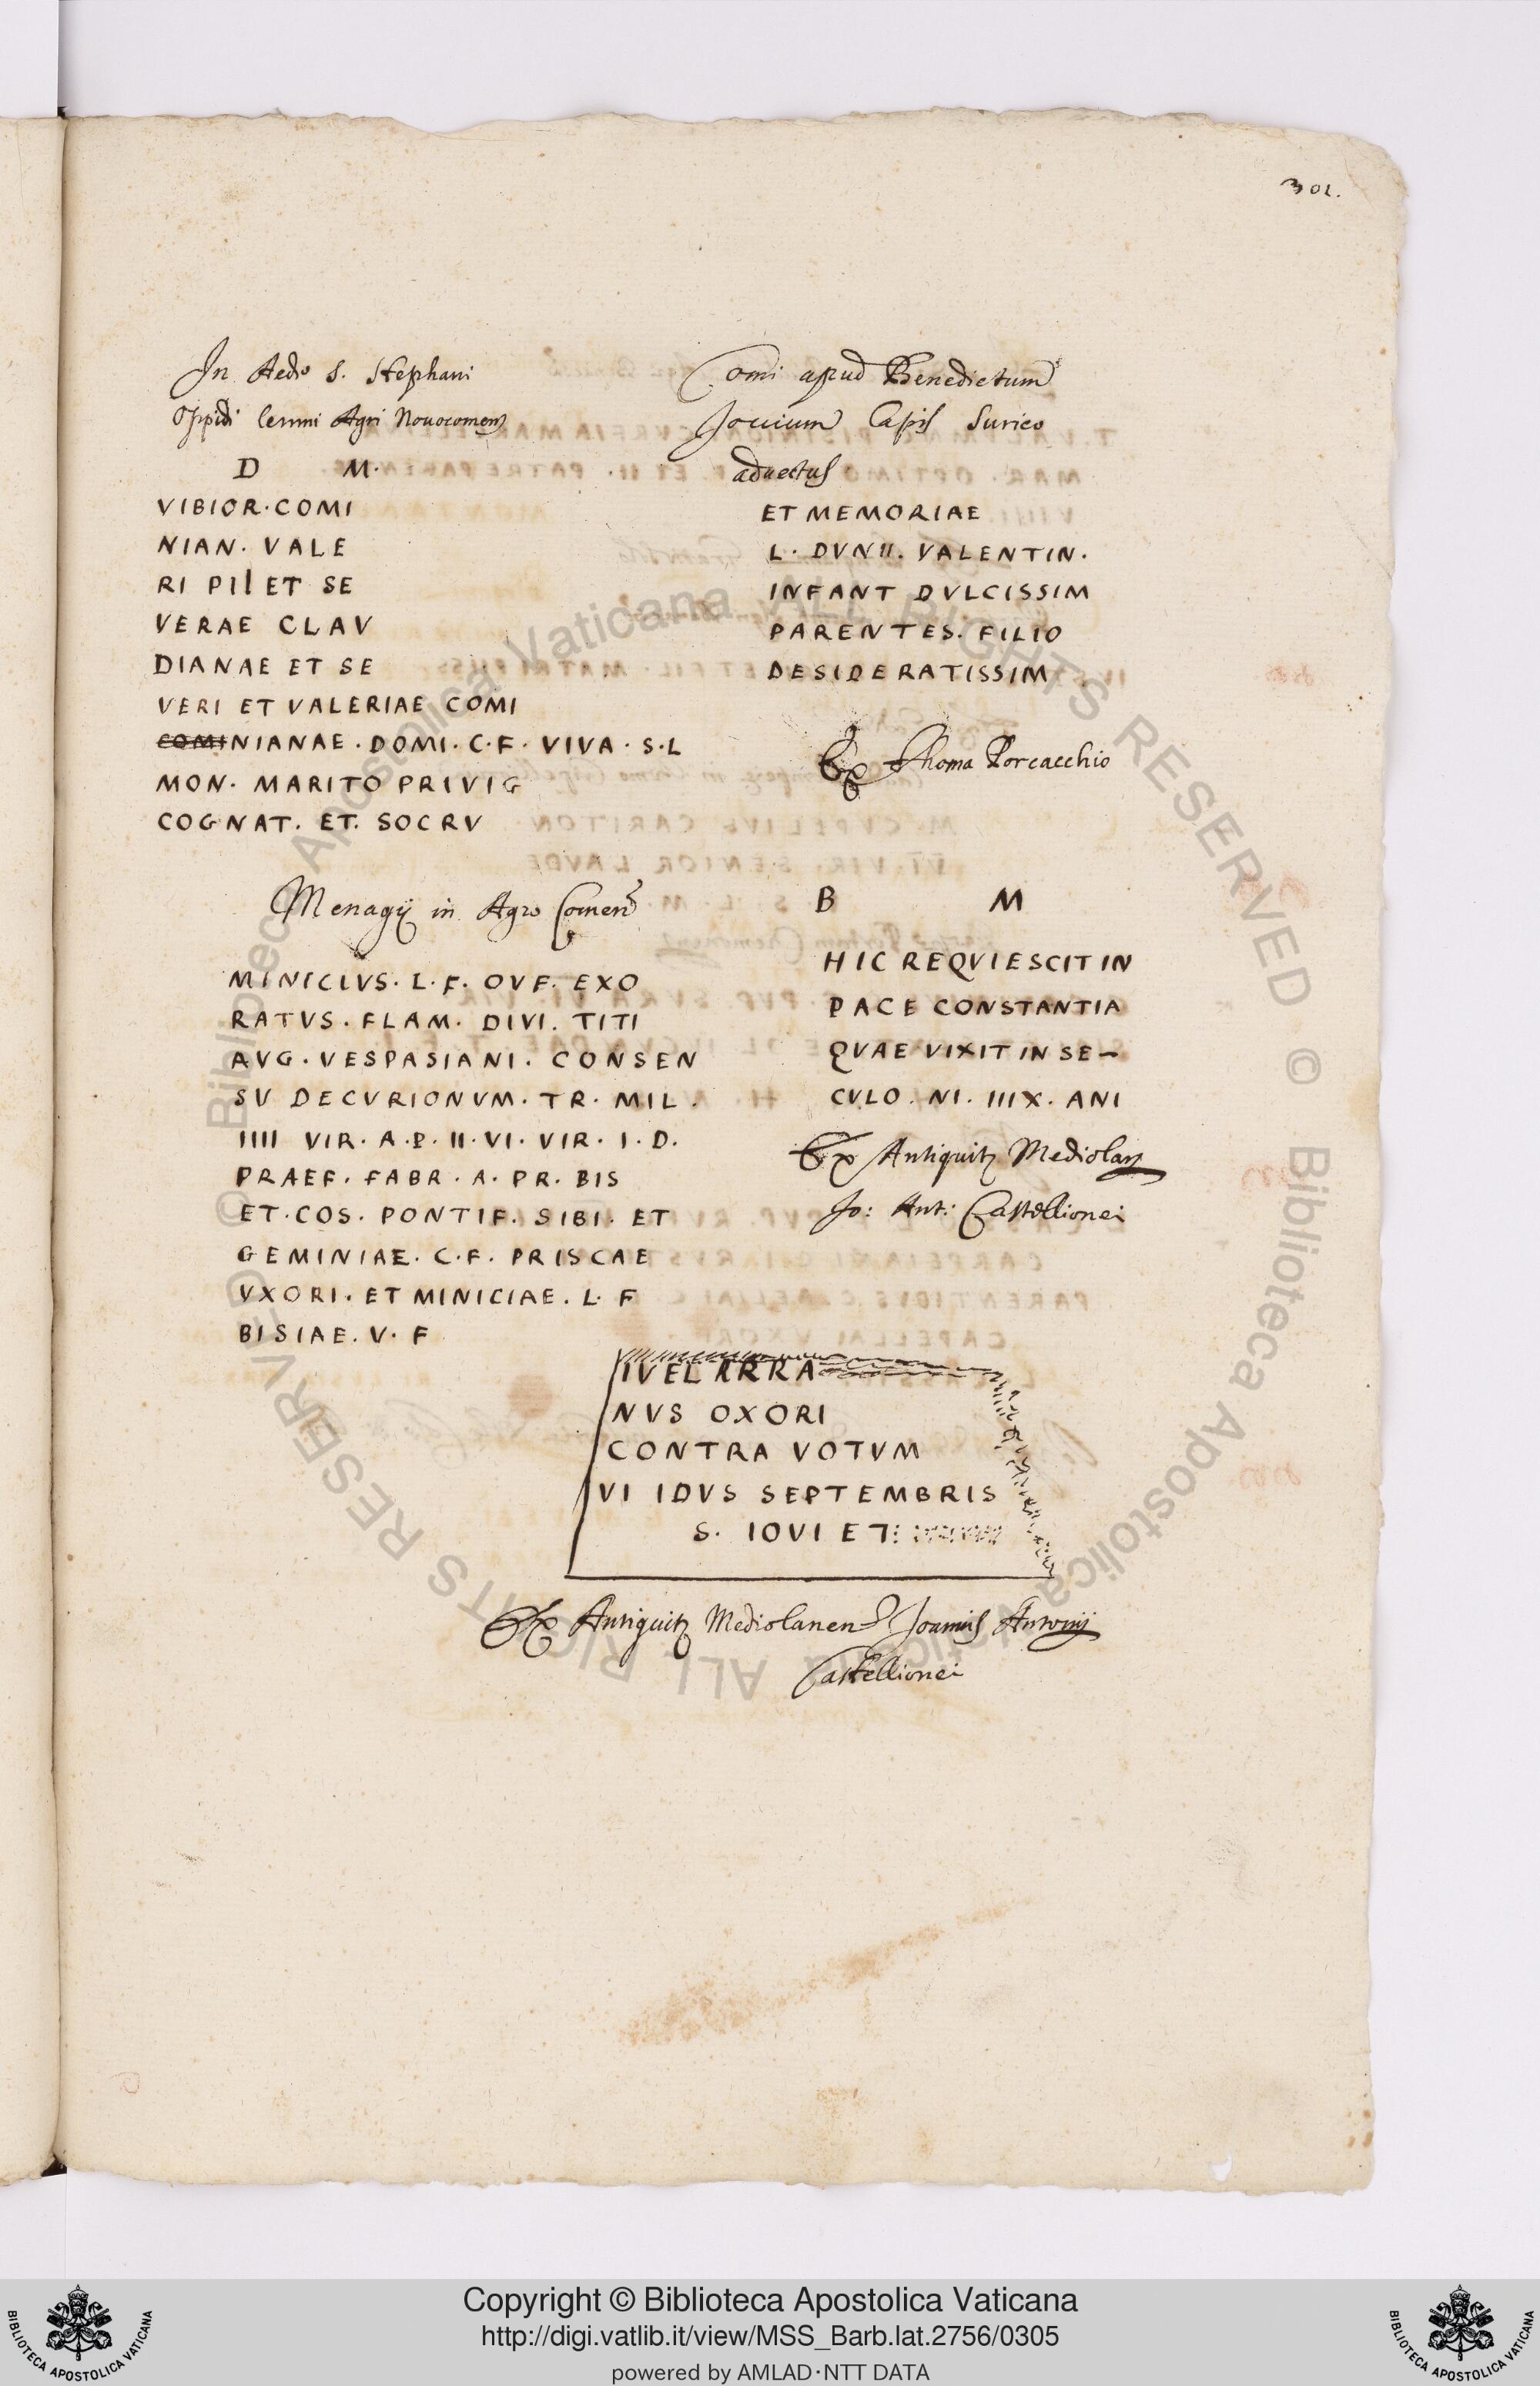 301.
In Aede S. Stephani
Oppidi Lemni Agri Novocomens
D M.
VIBIOR·COMI
NIAN. VALE
RI PII ET SE
VERAE CLAV
DIANAE ET SE
VERI ET VALERIAE COMI
COMINIANAE. DOMI. C. F. VIVA. S. L
MON. MARITO PRIVIG
COGNAT. ET. SOCRV
Comi apud Benedictum
Jovium Lapis Surico
advectus
ET MEMORIAE
L. DVNII. VALENTIN.
INFANT DVLCISSIM
PARENTES. FILIO
DESIDERATISSIM
Ex Thoma Porcacchio
Menagij in Agro Comens
MINICIVS. L. F. OVF. EXO
RATVS. FLAM. DIVI. TITI
AVG. VESPASIANI. CONSEN
SV DECVRIONVM. TR. MIL.
IIII VIR. A. P. II. VI. VIR. I. D.
PRAEF. FABR. A. PR. BIS
ET. COS. PONTIF. SIBI. ET
GEMINIAE. C. F. PRISCAE
VXORI. ET MINICIAE. L. F
BISIAE. V. F
B M
HIC REQVIESCIT IN
PACE CONSTANTIA
QVAE VIXIT IN SE-
CVLO. NI. IIIX. ANI
Ex Antiquit Mediolan
Jo: Ant: Castellionei
IVEL ARRA
NVS OXORI
CONTRA VOTVM
VI IDVS SEPTEMBRIS
S. IOVI ET
Ex Antiquit Mediolanens Joannis Antonij
Castellionei
Copyright © Biblioteca Apostolica Vaticana
http://digi.vatlib.it/view/MSS_Barb.lat.2756/0305
powered by AMLAD·NTT DATA
BIBLIOTECA APOSTOLICA VATICANA
BIBLIOTECA APOSTOLICA VATICANA
© Biblioteca Apostolica Vaticana ALL RIGHTS RESERVED © Biblioteca Apostolica Vaticana ALL RIGHTS RESERVED